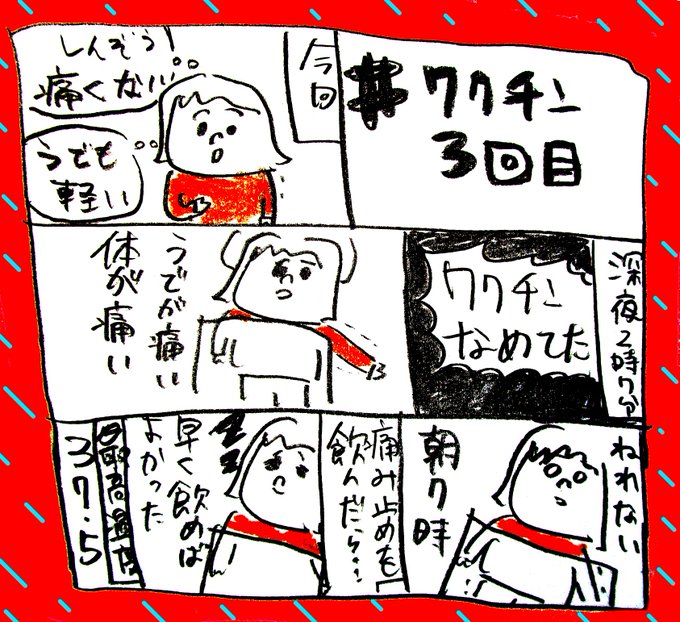 #ワクチン
3回目
今日
しんぞう
痛くない
うでも
軽い
深夜2時7分
ワクチン
なめてた
うでが痛い
体が痛い
ねれない
朝7時
痛み止めを
飲んだら…
早く飲めば
よかった
最高温度
37.5